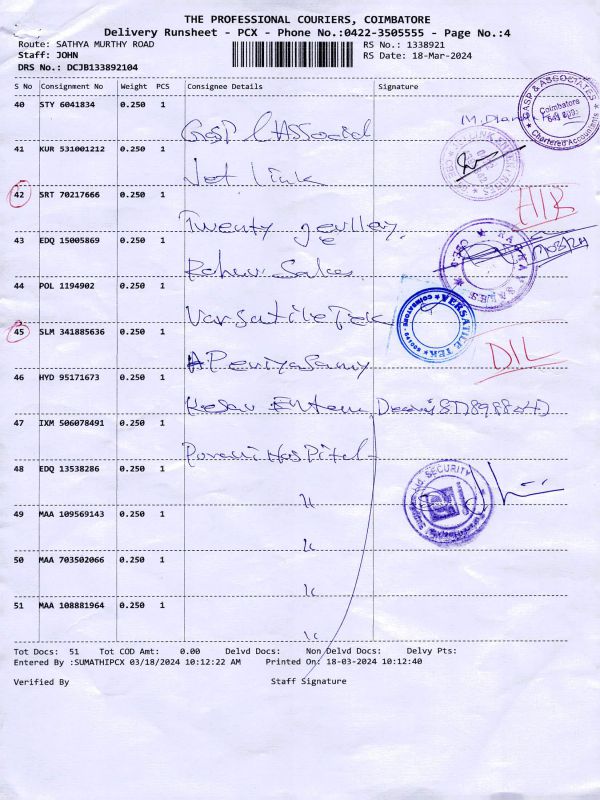 THE PROFESSIONAL COURIERS, COIMBATORE
Delivery Runsheet - PCX - Phone No.:0422-3505555 - Page No.:4
Route: SATHYA MURTHY ROAD RS No.: 1338921
Staff: JOHN RS Date: 18-Mar-2024
DRS No.: DCJB133892104
S No Consignment No Weight PCS Consignee Details Signature
40 STY 6041834 0.250 1
GASP & ASSOCIATES
Coimbatore
Chartered Accountants
41 KUR 531001212 0.250 1
Jet link
42 SRT 70217666 0.250 1
Twenty
43 EDQ 15005869 0.250 1
44 POL 1194902 0.250 1
Varsatile Tek
VERSATILE TEK
COIMBATORE
45 SLM 341885636 0.250 1
A Periyasamy
DIL
46 HYD 95171673 0.250 1
Kesav
47 IXM 506078491 0.250 1
Hospital
48 EDQ 13538286 0.250 1
"
SECURITY
49 MAA 109569143 0.250 1
"
50 MAA 703502066 0.250 1
"
51 MAA 108881964 0.250 1
"
Tot Docs: 51 Tot COD Amt: 0.00 Delvd Docs: Non Delvd Docs: Delvy Pts:
Entered By :SUMATHIPCX 03/18/2024 10:12:22 AM Printed On: 18-03-2024 10:12:40
Verified By Staff Signature